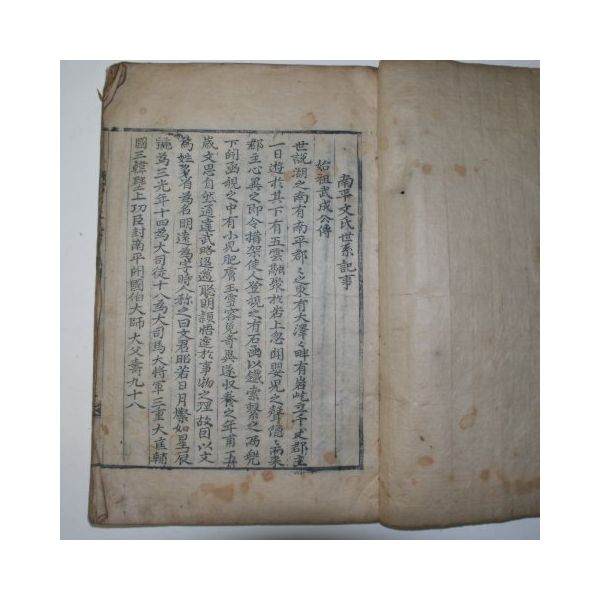 南平文氏世系記事
始祖武成公傳
世說湖之南有南平郡〻之東有大澤〻畔有岩屹立千丈郡主
一日遊於其下有五雲融聚於岩上忽聞嬰兒之聲隱〻而來
郡主心異之即令搆架使人登視之有石函以鐵索繫之而兠
下開函視之中有小兒肥膚玉雪容皃奇異遂收養之年甫五
歲文思自然通達武略過邁聡明頴悟達於事物之理故因以文
爲姓多省爲名明遠爲字時人称之曰文君耿若日月燦如星辰
號爲三光年十四爲大司徒十八爲大司馬大將軍三重大匡輔
國三韓壁上功臣封南平開國伯大師大父壽九十八